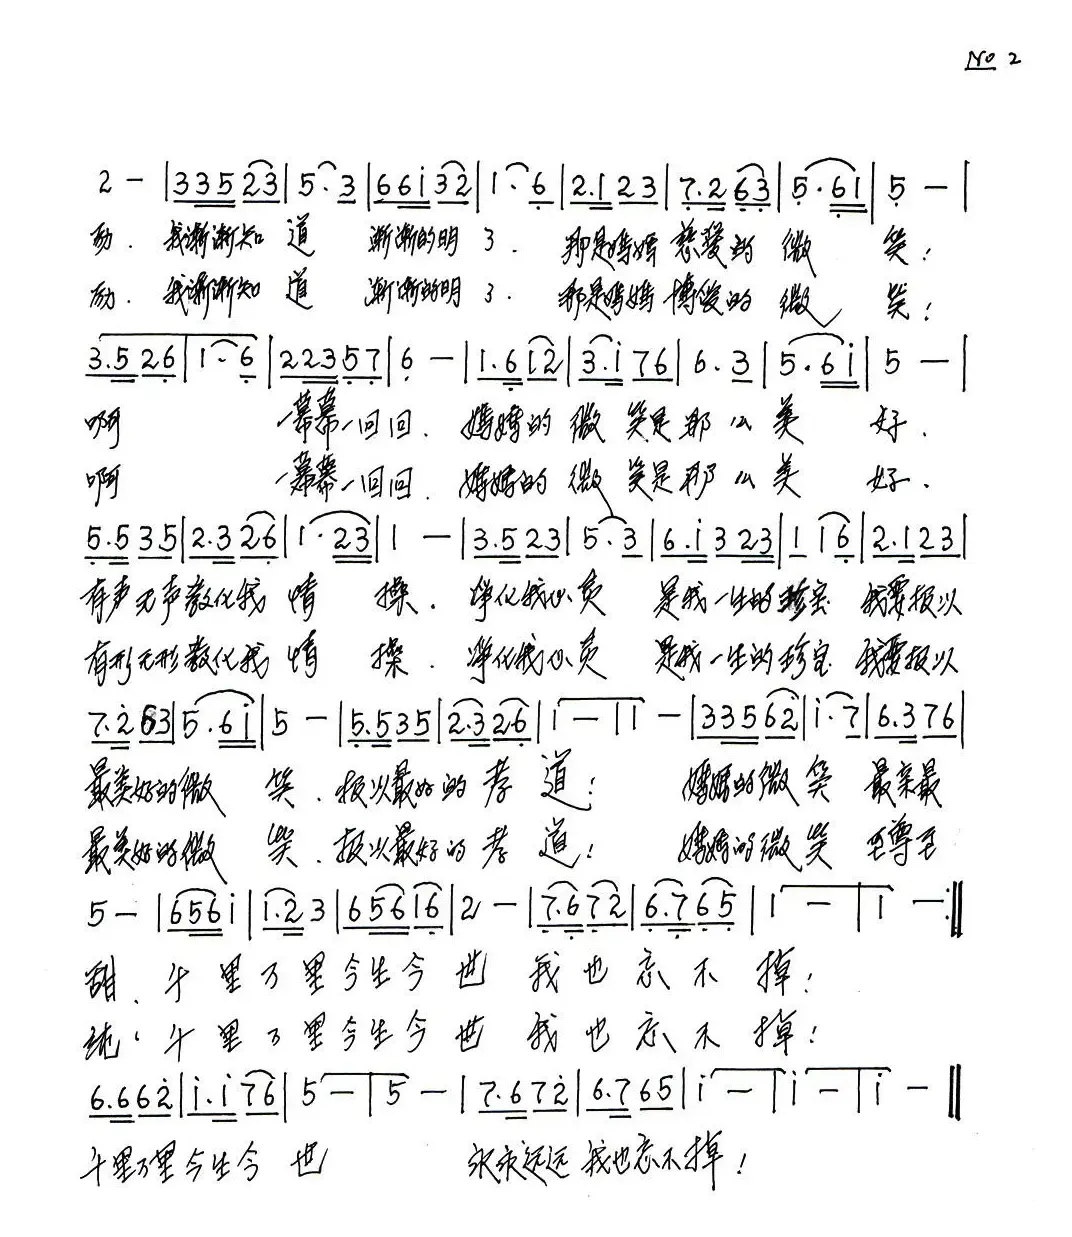 No 2
2 - | 3 3 5 2 3 | 5 · 3 | 6 6 i 3 2 | 1 · 6 | 2. 1 2 3 | 7. 2 6 3 | 5 · 6 1 | 5 - |
动. 我渐渐知道 渐渐的明了. 那是妈妈慈爱的微笑;
励. 我渐渐知道 渐渐的明了. 那是妈妈博爱的微笑;
3. 5 2 6 | 1 · 6 | 2 2 3 5 7 | 6 - | 1. 6 i 2 | 3. i 7 6 | 6. 3 | 5 · 6 i | 5 - |
啊 一幕幕一回回. 妈妈的微笑是那么美好.
啊 一幕幕一回回. 妈妈的微笑是那么美好.
5. 5 3 5 | 2. 3 2 6 | 1 · 2 3 | 1 - | 3. 5 2 3 | 5 · 3 | 6. i 3 2 3 | 1 1 6 | 2. 1 2 3 |
有声无声教化我情操. 净化我心灵 是我一生的珍宝 我要报以
有形无形教化我情操. 净化我心灵 是我一生的珍宝 我要报以
7. 2 6 3 | 5 · 6 i | 5 - | 5. 5 3 5 | 2. 3 2 6 | 1 - | 1 - | 3 3 5 6 2 | i · 7 | 6. 3 7 6 |
最美好的微笑. 报以最好的孝道; 妈妈的微笑 最亲最
最美好的微笑. 报以最好的孝道; 妈妈的微笑 至尊至
5 - | 6 5 6 i | i. 2 3 | 6 5 6 1 6 | 2 - | 7. 6 7 2 | 6. 7 6 5 | 1 - | 1 - :||
甜. 千里万里今生今世 我也忘不掉;
纯. 千里万里今生今世 我也忘不掉;
6. 6 6 2 | i. i 7 6 | 5 - | 5 - | 7. 6 7 2 | 6. 7 6 5 | i - | i - | i - ||
千里万里今生今世 永永远远我也忘不掉!